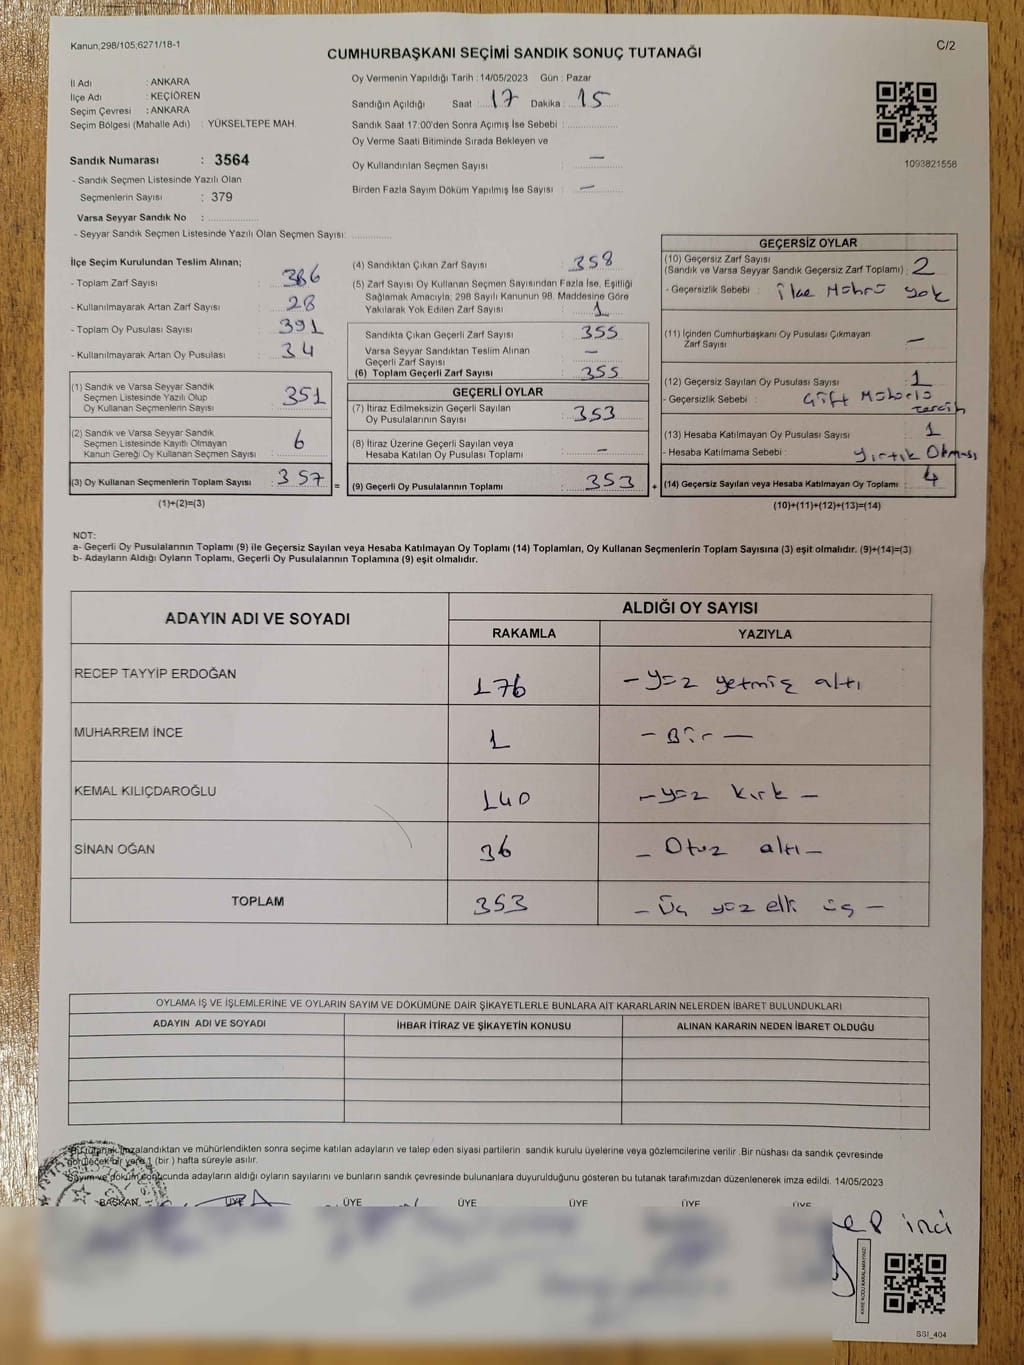 Kanun;298/105;6271/18-1
C/2
CUMHURBAŞKANI SEÇİMİ SANDIK SONUÇ TUTANAĞI
İl Adı : ANKARA
İlçe Adı : KEÇİÖREN
Seçim Çevresi : ANKARA
Seçim Bölgesi (Mahalle Adı) : YÜKSELTEPE MAH.
Sandık Numarası : 3564
- Sandık Seçmen Listesinde Yazılı Olan
Seçmenlerin Sayısı : 379
Varsa Seyyar Sandık No :
- Seyyar Sandık Seçmen Listesinde Yazılı Olan Seçmen Sayısı:
Oy Vermenin Yapıldığı Tarih : 14/05/2023 Gün : Pazar
Sandığın Açıldığı Saat : 17 Dakika : 15
Sandık Saat 17:00'den Sonra Açımış İse Sebebi :
Oy Verme Saati Bitiminde Sırada Bekleyen ve
Oy Kullandırılan Seçmen Sayısı : —
Birden Fazla Sayım Döküm Yapılmış İse Sayısı : —
1093821558
İlçe Seçim Kurulundan Teslim Alınan;
- Toplam Zarf Sayısı : 386
- Kullanılmayarak Artan Zarf Sayısı : 28
- Toplam Oy Pusulası Sayısı : 391
- Kullanılmayarak Artan Oy Pusulası : 34
(1) Sandık ve Varsa Seyyar Sandık
Seçmen Listesinde Yazılı Olup
Oy Kullanan Seçmenlerin Sayısı : 351
(2) Sandık ve Varsa Seyyar Sandık
Seçmen Listesinde Kayıtlı Olmayan
Kanun Gereği Oy Kullanan Seçmen Sayısı : 6
(3) Oy Kullanan Seçmenlerin Toplam Sayısı : 357
(1)+(2)=(3)
(4) Sandıktan Çıkan Zarf Sayısı : 358
(5) Zarf Sayısı Oy Kullanan Seçmen Sayısından Fazla İse, Eşitliği
Sağlamak Amacıyla; 298 Sayılı Kanunun 98. Maddesine Göre
Yakılarak Yok Edilen Zarf Sayısı : 1
Sandıkta Çıkan Geçerli Zarf Sayısı : 355
Varsa Seyyar Sandıktan Teslim Alınan
Geçerli Zarf Sayısı : —
(6) Toplam Geçerli Zarf Sayısı : 355
GEÇERLİ OYLAR
(7) İtiraz Edilmeksizin Geçerli Sayılan
Oy Pusulalarının Sayısı : 353
(8) İtiraz Üzerine Geçerli Sayılan veya
Hesaba Katılan Oy Pusulası Toplamı : —
= (9) Geçerli Oy Pusulalarının Toplamı : 353 +
GEÇERSİZ OYLAR
(10) Geçersiz Zarf Sayısı
(Sandık ve Varsa Seyyar Sandık Geçersiz Zarf Toplamı) : 2
- Geçersizlik Sebebi : İlçe Mührü yok
(11) İçinden Cumhurbaşkanı Oy Pusulası Çıkmayan
Zarf Sayısı : —
(12) Geçersiz Sayılan Oy Pusulası Sayısı : 1
- Geçersizlik Sebebi : Çift Mühürlü
tercih
(13) Hesaba Katılmayan Oy Pusulası Sayısı : 1
- Hesaba Katılmama Sebebi : Yırtık Olması
(14) Geçersiz Sayılan veya Hesaba Katılmayan Oy Toplamı : 4
(10)+(11)+(12)+(13)=(14)
NOT:
a- Geçerli Oy Pusulalarının Toplamı (9) ile Geçersiz Sayılan veya Hesaba Katılmayan Oy Toplamı (14) Toplamları, Oy Kullanan Seçmenlerin Toplam Sayısına (3) eşit olmalıdır. (9)+(14)=(3)
b- Adayların Aldığı Oyların Toplamı, Geçerli Oy Pusulalarının Toplamına (9) eşit olmalıdır.
ADAYIN ADI VE SOYADI
ALDIĞI OY SAYISI
RAKAMLA YAZIYLA
RECEP TAYYİP ERDOĞAN 176 - yüz yetmiş altı
MUHARREM İNCE 1 - Bir —
KEMAL KILIÇDAROĞLU 140 - yüz kırk -
SİNAN OĞAN 36 - Otuz altı -
TOPLAM 353 - Üç yüz elli üç -
OYLAMA İŞ VE İŞLEMLERİNE VE OYLARIN SAYIM VE DÖKÜMÜNE DAİR ŞİKAYETLERLE BUNLARA AİT KARARLARIN NELERDEN İBARET BULUNDUKLARI
ADAYIN ADI VE SOYADI İHBAR İTİRAZ VE ŞİKAYETİN KONUSU ALINAN KARARIN NEDEN İBARET OLDUĞU
Bu tutanak imzalandıktan ve mühürlendikten sonra seçime katılan adayların ve talep eden siyasi partilerin sandık kurulu üyelerine veya gözlemcilerine verilir .Bir nüshası da sandık çevresinde
görülecek bir yere 1 (bir ) hafta süreyle asılır.
Sayım ve döküm sonucunda adayların aldığı oyların sayılarını ve bunların sandık çevresinde bulunanlara duyurulduğunu gösteren bu tutanak tarafımızdan düzenlenerek imza edildi. 14/05/2023
BAŞKAN ÜYE ÜYE ÜYE ÜYE ÜYE ÜYE
inci
SSI_404